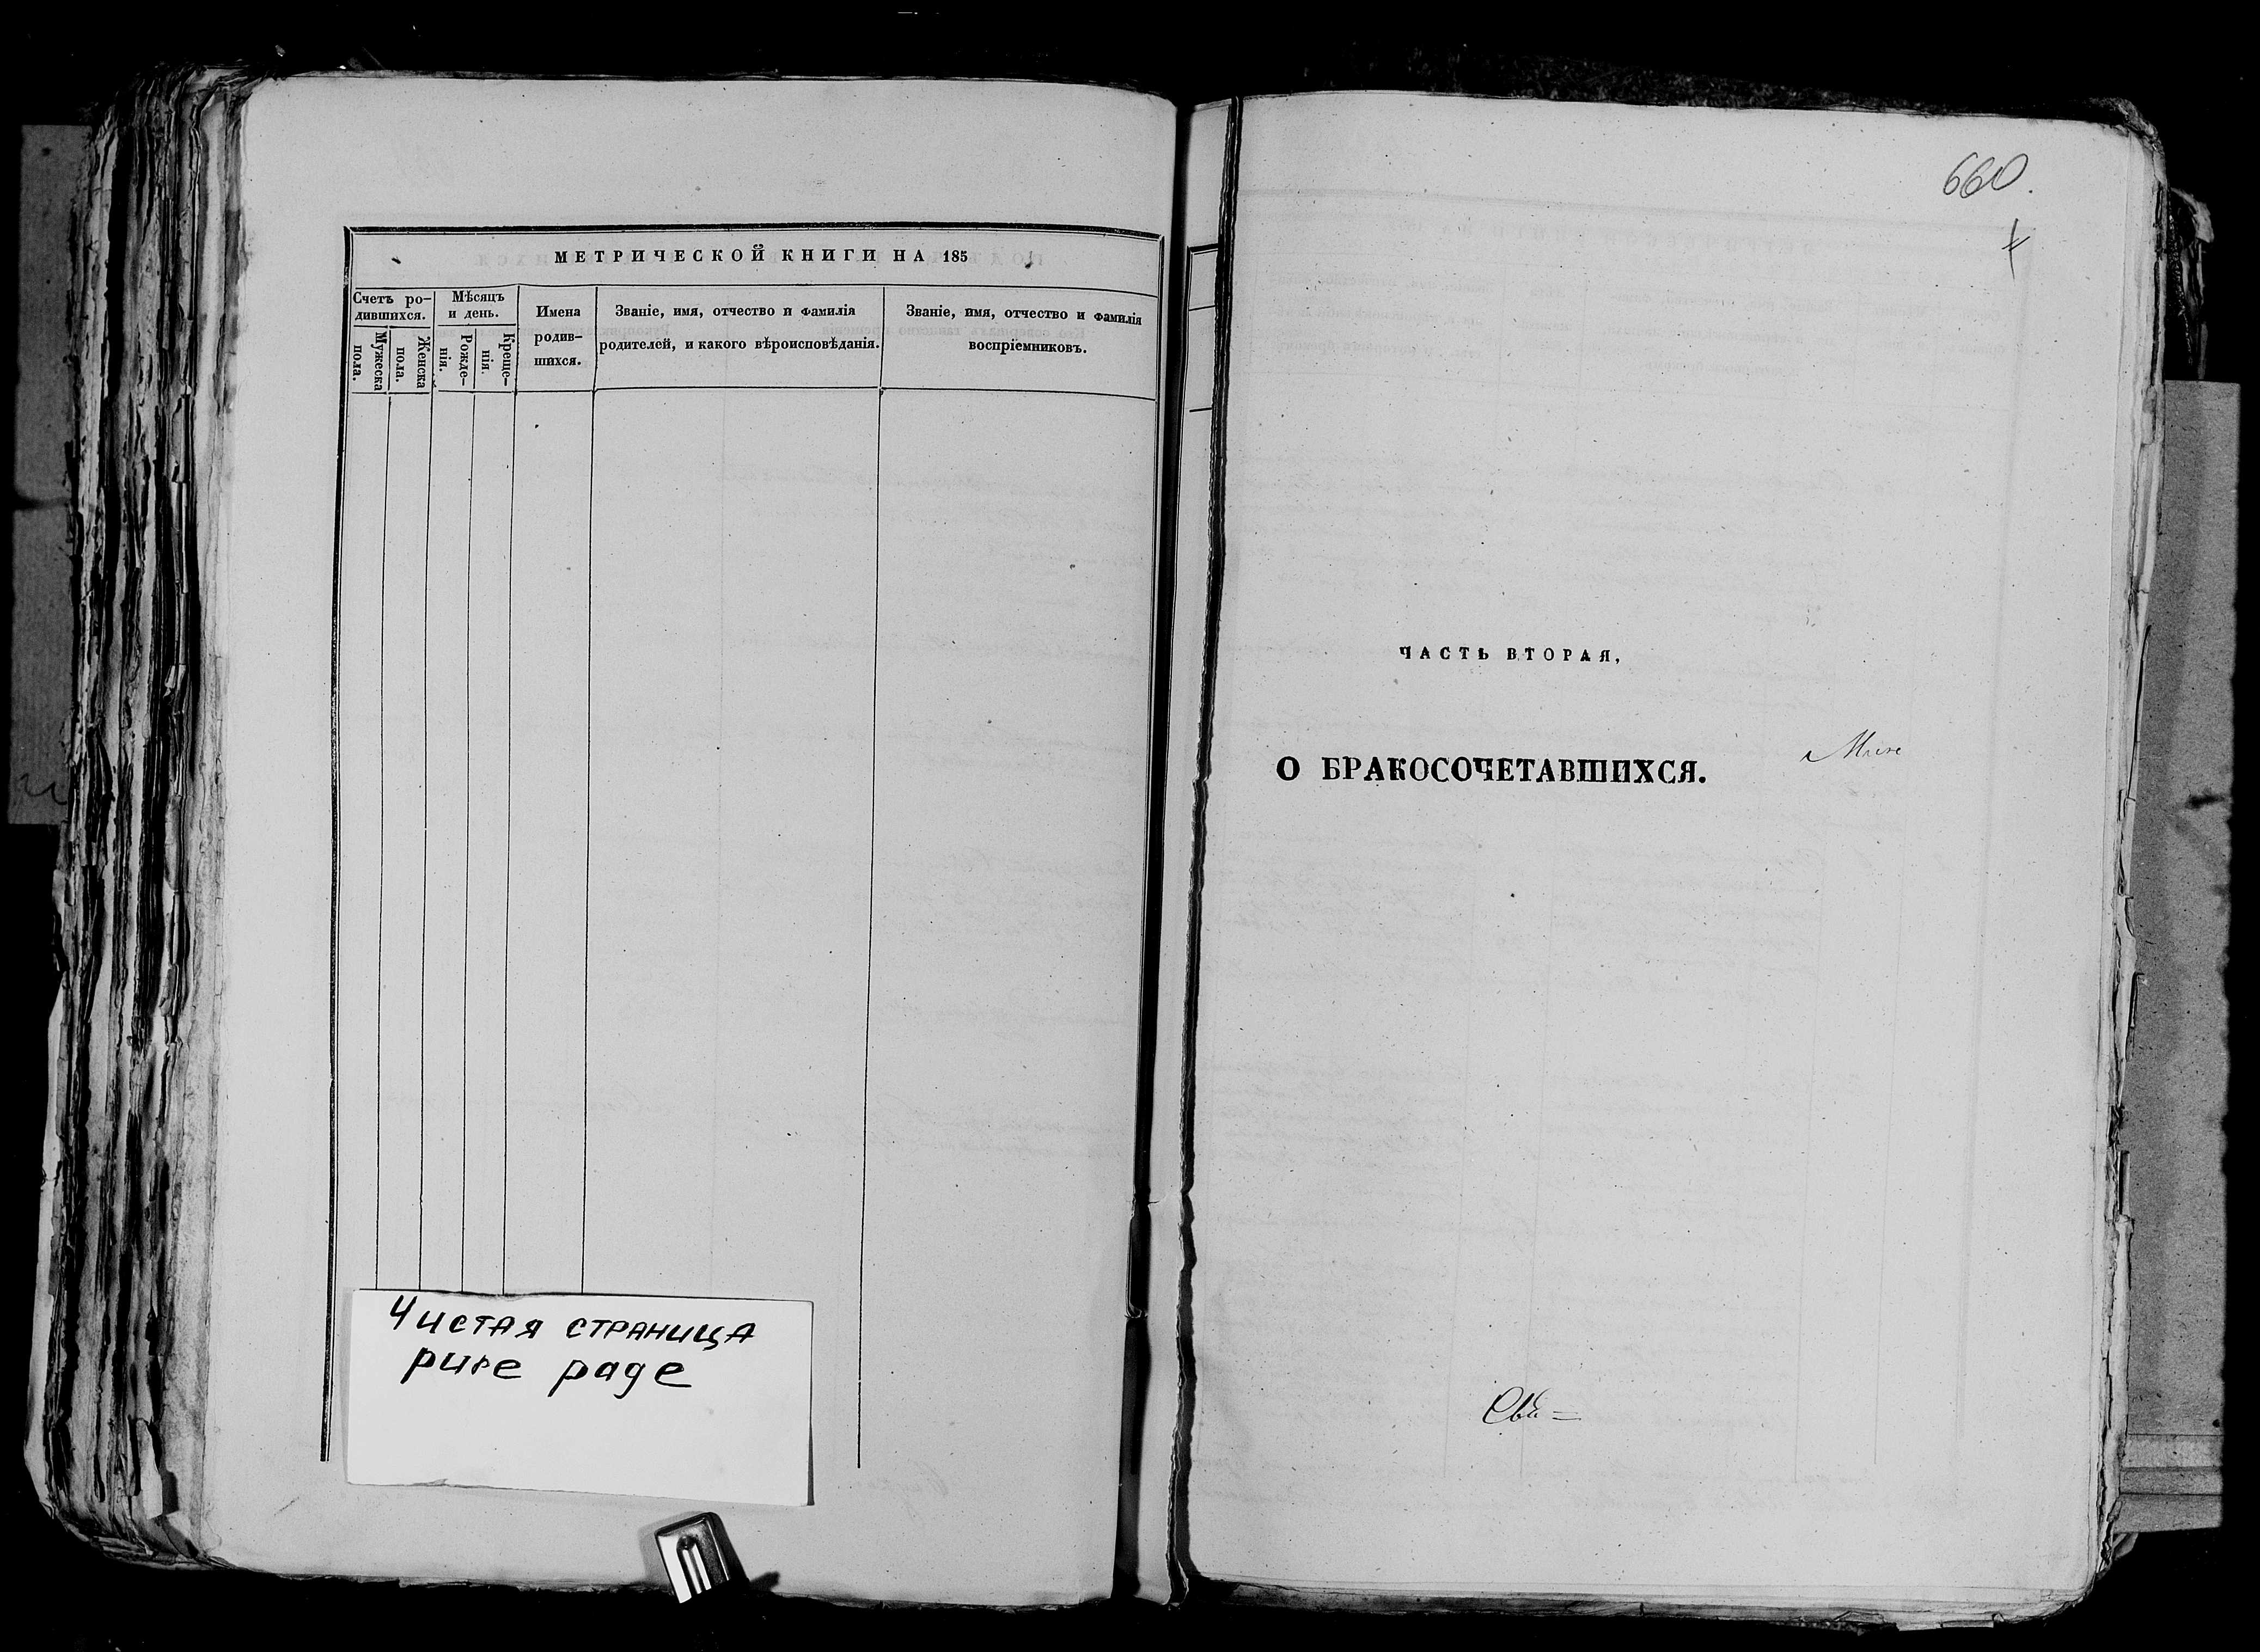 МЕТРИЧЕСКОЙ КНИГИ НА 185
Счетъ ро-
дившихся.
Мужеска
пола.
Женска
пола.
Мѣсяцъ
и день.
Рожде-
нія.
Креще-
нія.
Имена
родив-
шихся.
Званіе, имя, отчество и фамилія
родителей, и какого вѣроисповѣданія.
Званіе, имя, отчество и фамилія
воспріемниковъ.
Чистая страница
pure page
660.
ЧАСТЬ ВТОРАЯ,
О БРАКОСОЧЕТАВШИХСЯ.